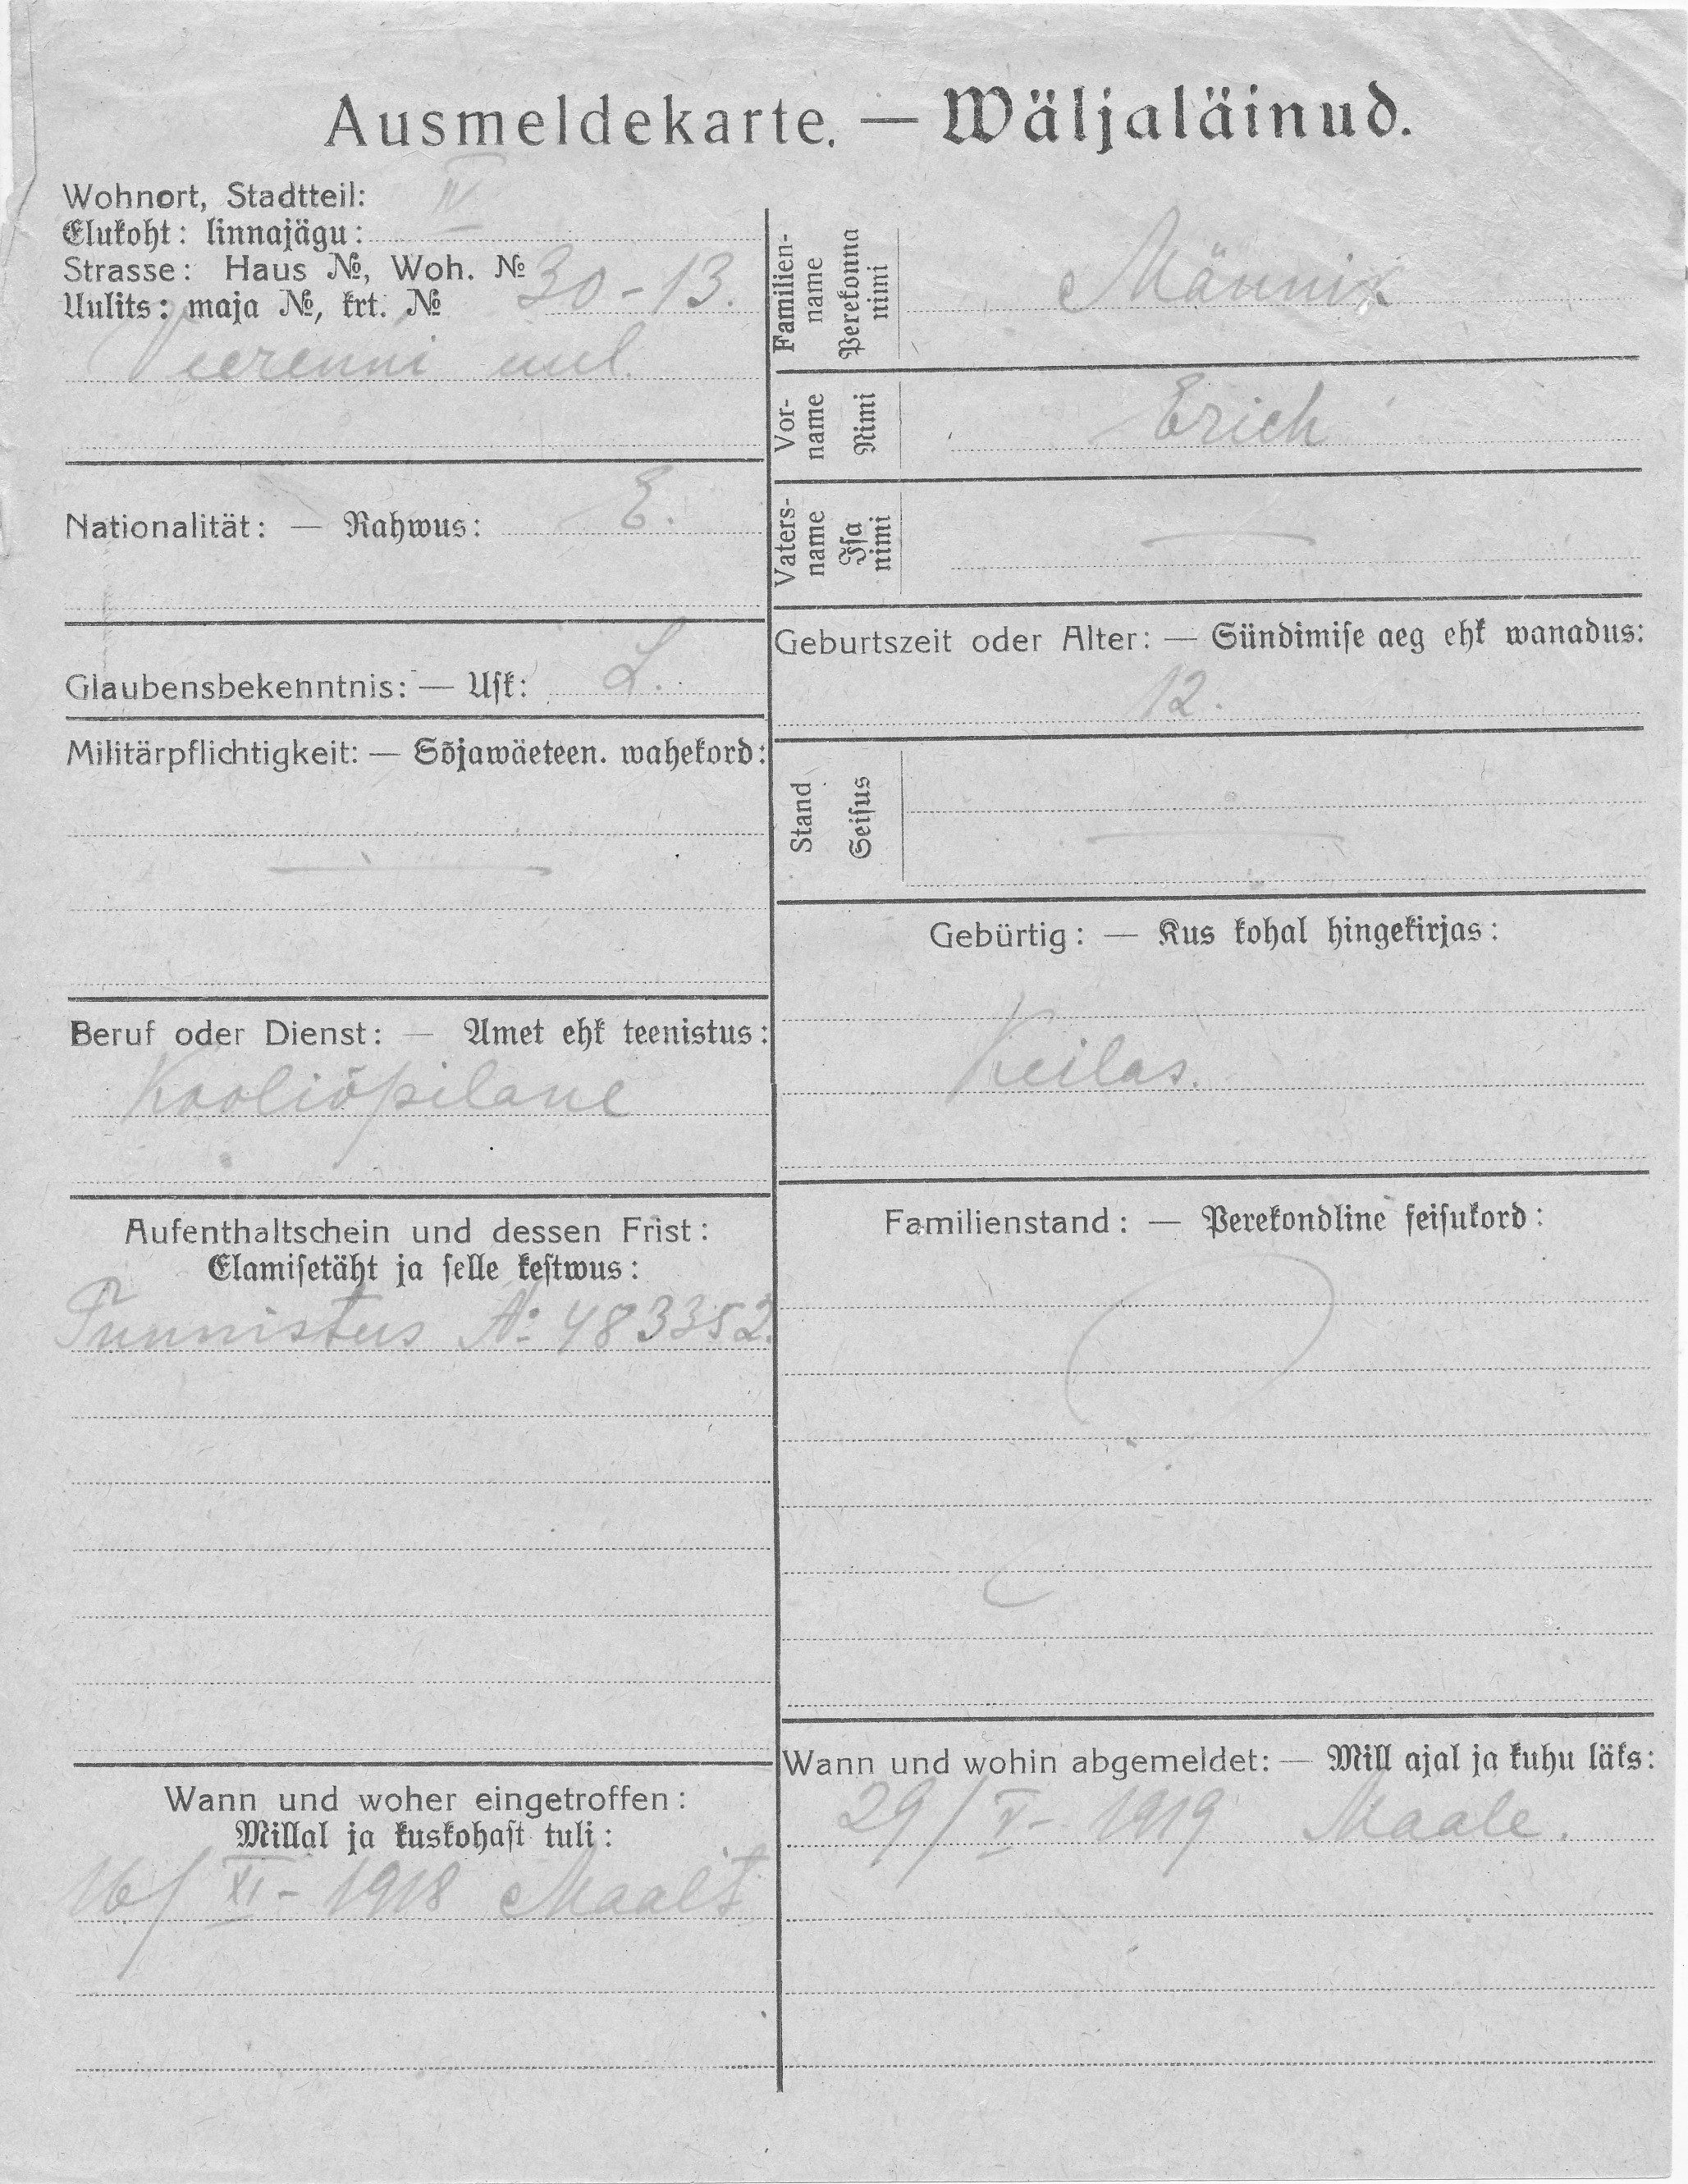 Ausmeldekarte. — Wäljaläinud.
Wohnort, Stadtteil: IV
Elukoht: linnajägu:
Strasse: Haus №, Woh. № 30-13.
Uulits: maja №, krt. №
Veerenni uul.
Nationalität: — Rahwus: E.
Glaubensbekenntnis: — Usk: L.
Militärpflichtigkeit: — Sõjawäeteen. wahekord:
—
Beruf oder Dienst: — Amet ehk teenistus:
Kooliõpilane
Aufenthaltschein und dessen Frist:
Elamisetäht ja selle kestwus:
Tunnistus № 483352.
Wann und woher eingetroffen:
Millal ja kuskohast tuli:
16/XI - 1918 Maalt
Familien-
name
Perekonna
nimi
Männik
Vor-
name
Nimi
Erich
Vaters-
name
Isa
nimi
—
Geburtszeit oder Alter: — Sündimise aeg ehk wanadus:
12.
Stand
Seisus
—
Gebürtig: — Kus kohal hingekirjas:
Keilas.
Familienstand: — Perekondline seisukord:
Wann und wohin abgemeldet: — Mill ajal ja kuhu läks:
29/V - 1919 Maale.